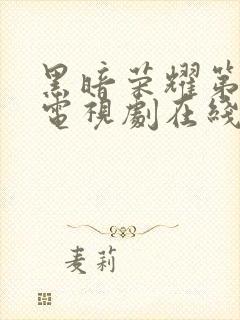 黑暗荣耀第
電視劇在綫
麦莉